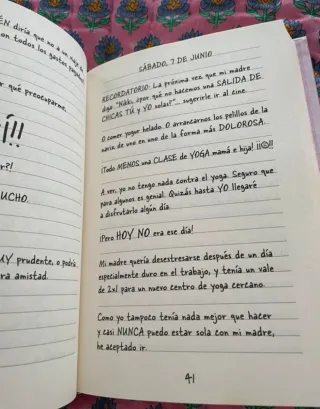 ÉN diría que no a un viaje de
on todos los gastos pagados
r qué preocuparme.
Í!!
dr?!
UCHO.
UY prudente, o podría
ra amistad.
SÁBADO, 7 DE JUNIO
RECORDATORIO: La próxima vez que mi madre
diga "Nikki, ¿por qué no hacemos una SALIDA DE
CHICAS TÚ y YO solas?"... sugerirle ir al cine.
O comer yogur helado. O arrancarnos los pelillos de la
nariz de uno en uno de la forma más DOLOROSA.
¡Todo MENOS una CLASE de YOGA mamá e hija! ¡¡☹!!
A ver, yo no tengo nada contra el yoga. Seguro que
para algunos es genial. Quizás hasta YO llegaré
a disfrutarlo algún día.
¡Pero HOY NO era ese día!
Mi madre quería desestresarse después de un día
especialmente duro en el trabajo, y tenía un vale
de 2x1 para un nuevo centro de yoga cercano.
Como yo tampoco tenía nada mejor que hacer
y casi NUNCA puedo estar sola con mi madre,
he aceptado ir.
41